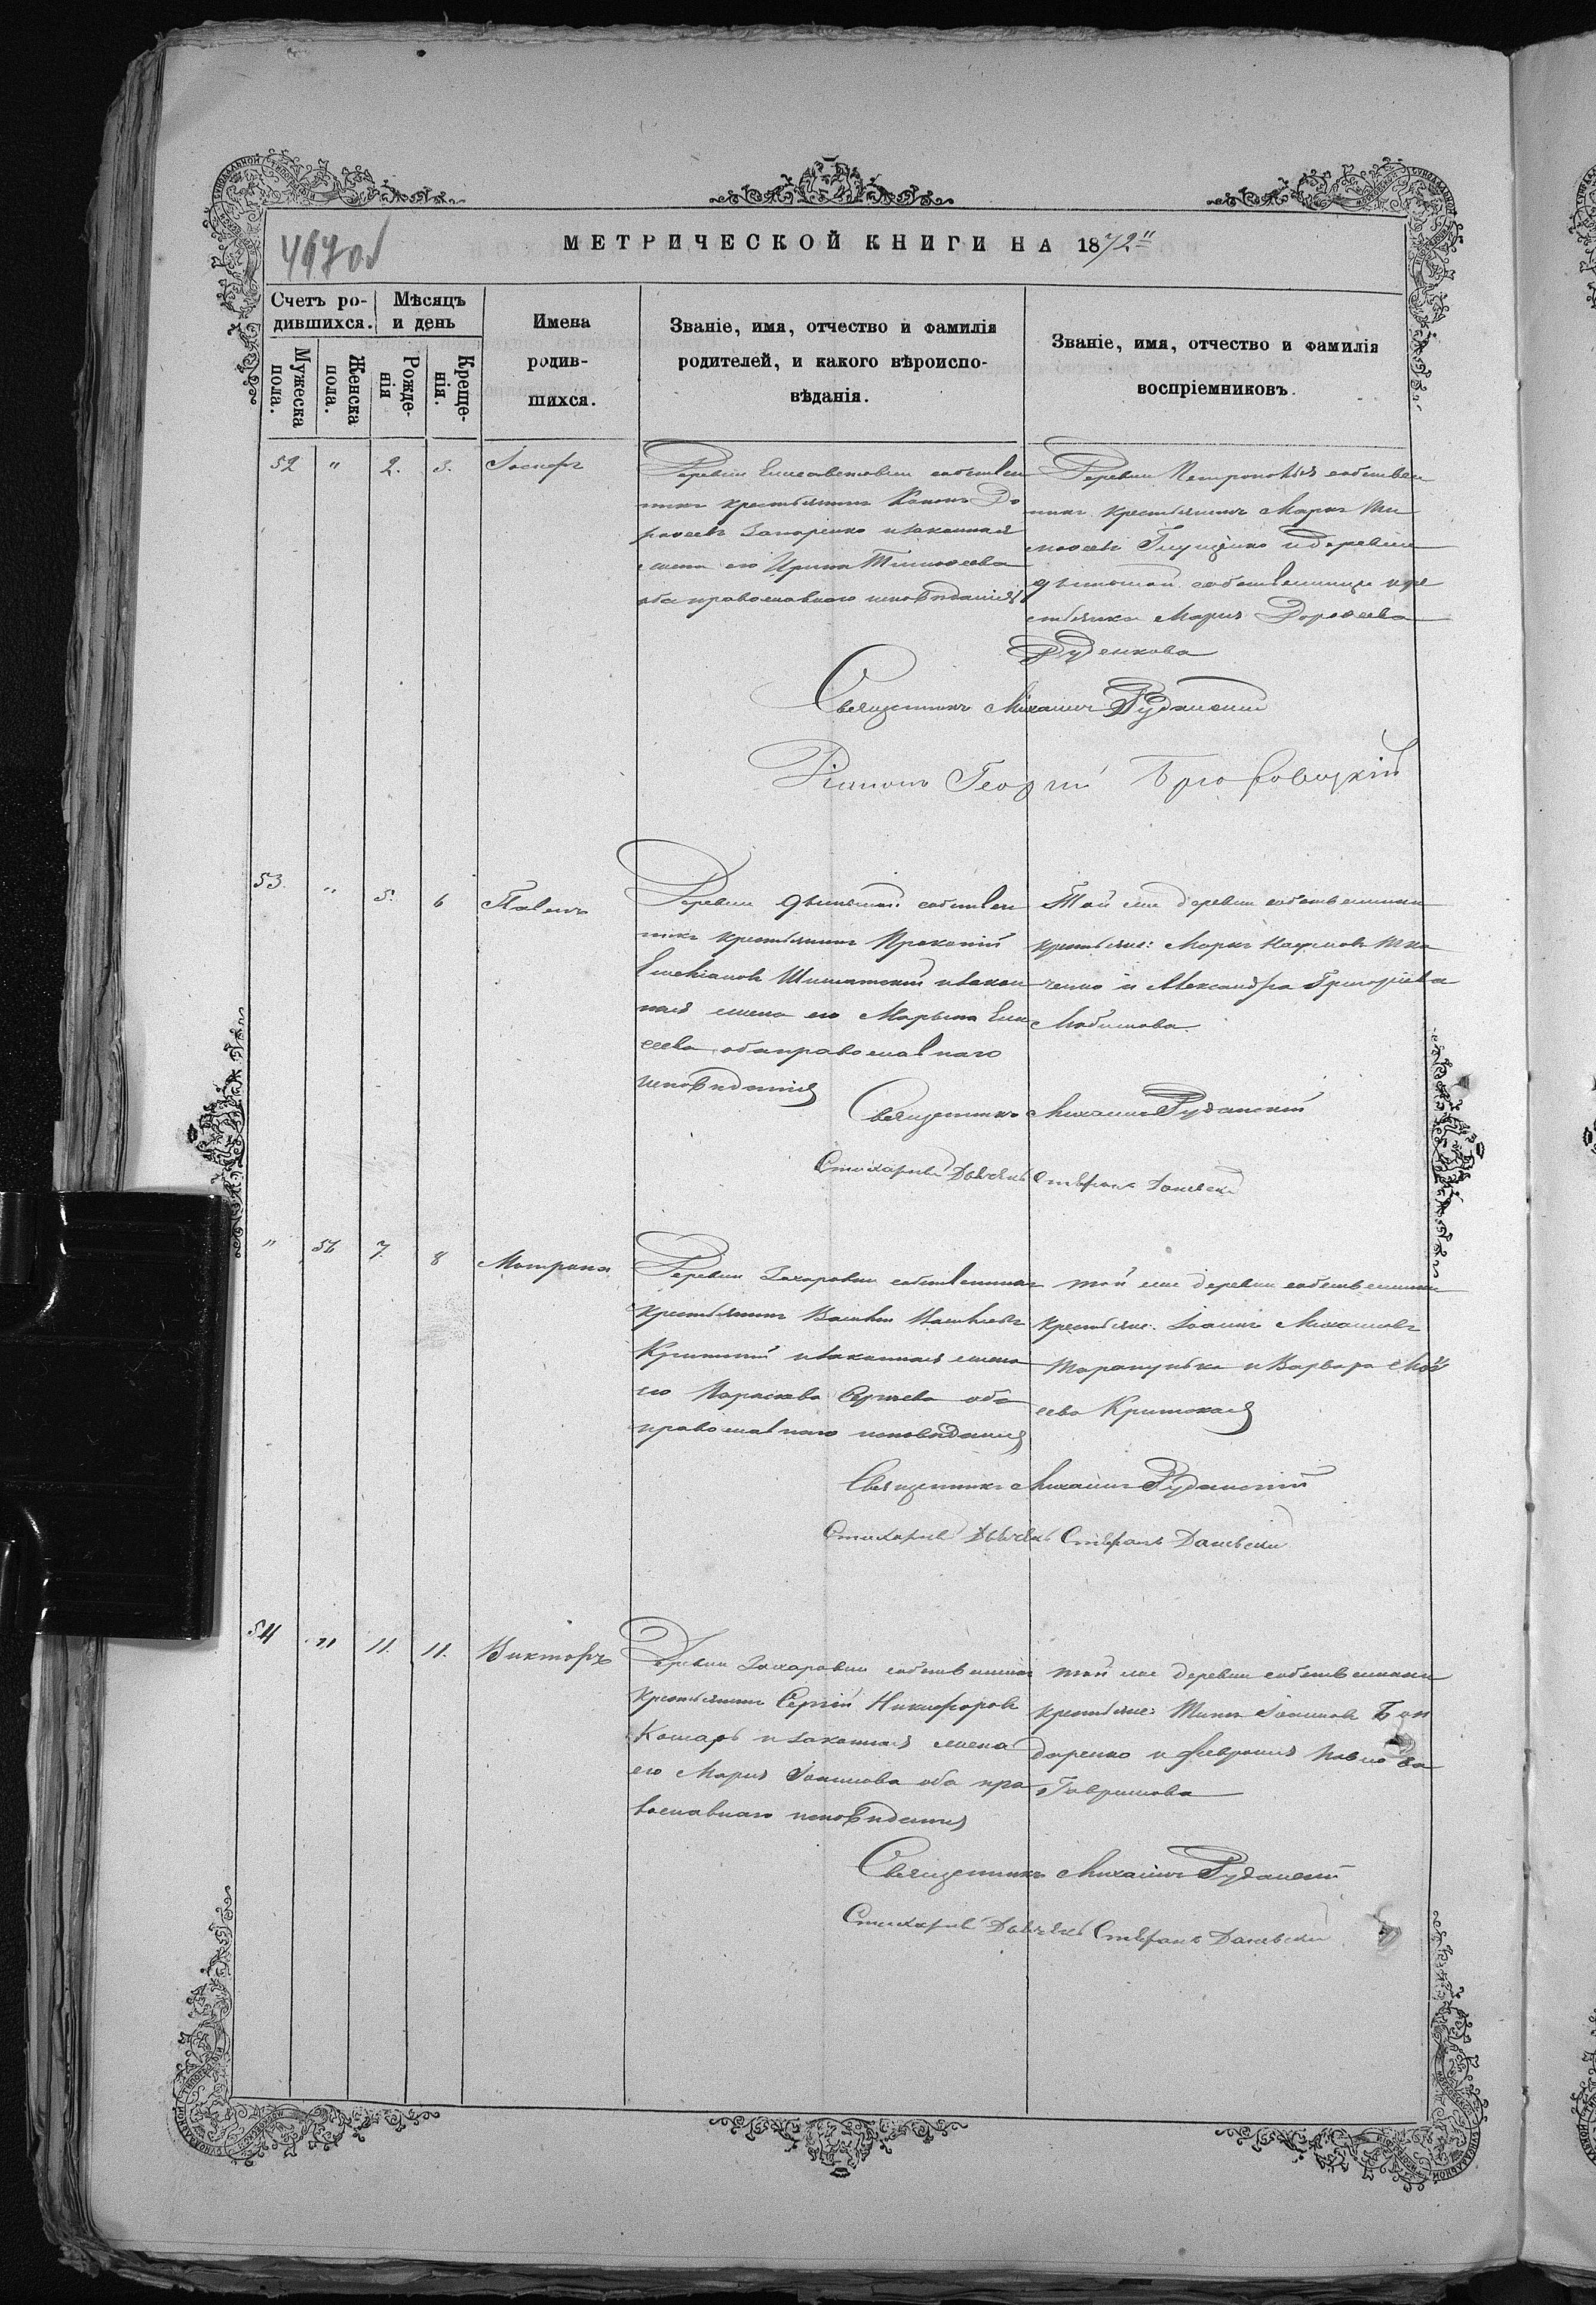 497 об
МЕТРИЧЕСКОЙ КНИГИ НА 1872
Счетъ ро-
дившихся.
Мѣсяцъ
и день
Имена
родив-
шихся.
Званіе, имя, отчество и фамилія
родителей, и какого вѣроиспо-
вѣданія.
Званіе, имя, отчество и фамилія
воспріемниковъ.
Мужеска
пола.
Женска
пола.
Рожде-
нія
Креще-
нія.
52 " 2. 3. Іосифъ
Деревни Елисаветовки собствен
никъ крестьянинъ Кононъ До
рофеевъ Захаренко и законная
жена его Ирина Тимофеева
оба православнаго исповѣданія
Деревни Петровки собствен
никъ крестьянинъ Маркъ Ти
мофеевъ Глущенко и деревни
собственница кре
стьянка Марія Дорофеева
Руденкова
Священникъ Михаилъ Руданскій
Георгій
53. " 5. 6 Павелъ
Деревни собствен
никъ крестьянинъ Прокопій
Шишатскій и закон
ная жена его Марьяна Ели
сеева оба православнаго
исповѣданія
Той же деревни собственники
крестьяне: Маркъ Наумовъ Тка
ченко и Александра Григоріева
Священникъ Михаилъ Руданскій
Стихарный Дьячекъ Стефанъ Даневскі
" 56 7. 8 Матрона
Деревни Захаровки собственник
крестьянинъ Василій Васильевъ
и законная жена
его Параскева Сергѣева оба
православнаго исповѣданія
той же деревни собственники
крестьяне: Іоаннъ Михаиловъ
Тарапунька и Варвара Мой
сеева
Священникъ Михаилъ Руданскій
Стихарный Дьячекъ Стефанъ Даневскі
54 " 11. 11. Викторъ
Деревни Захаровки собственник
крестьянинъ Сергій Никифоровъ
Комаръ и законная жена
его Марія Іоаннова оба пра
вославнаго исповѣданія
той же деревни собственники
крестьяне: Титъ Іоанновъ Бон
даренко и Февронія Павлова
Гаврилова
Священникъ Михаилъ Руданскій
Стихарный Дьячекъ Стефанъ Даневскі